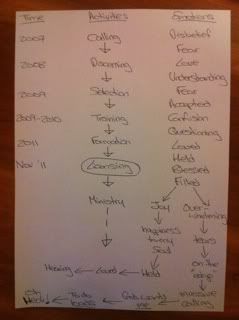 Time Activities Emotions
2007 Calling Disbelief
Fear
2008 Discerning Love
Understanding
2009 Selection Fear
Accepted
2009-2010 Training Confusion
Questioning
2011 Formation Loved
Held
Nov '11 Licensing Blessed
Filled
Ministry Joy Over-
whelming
happiness tears
to my
Soul on the
"edge"
Healing Loved Held massive
calling
God wants
me
To do
loads
Oh
Heck!